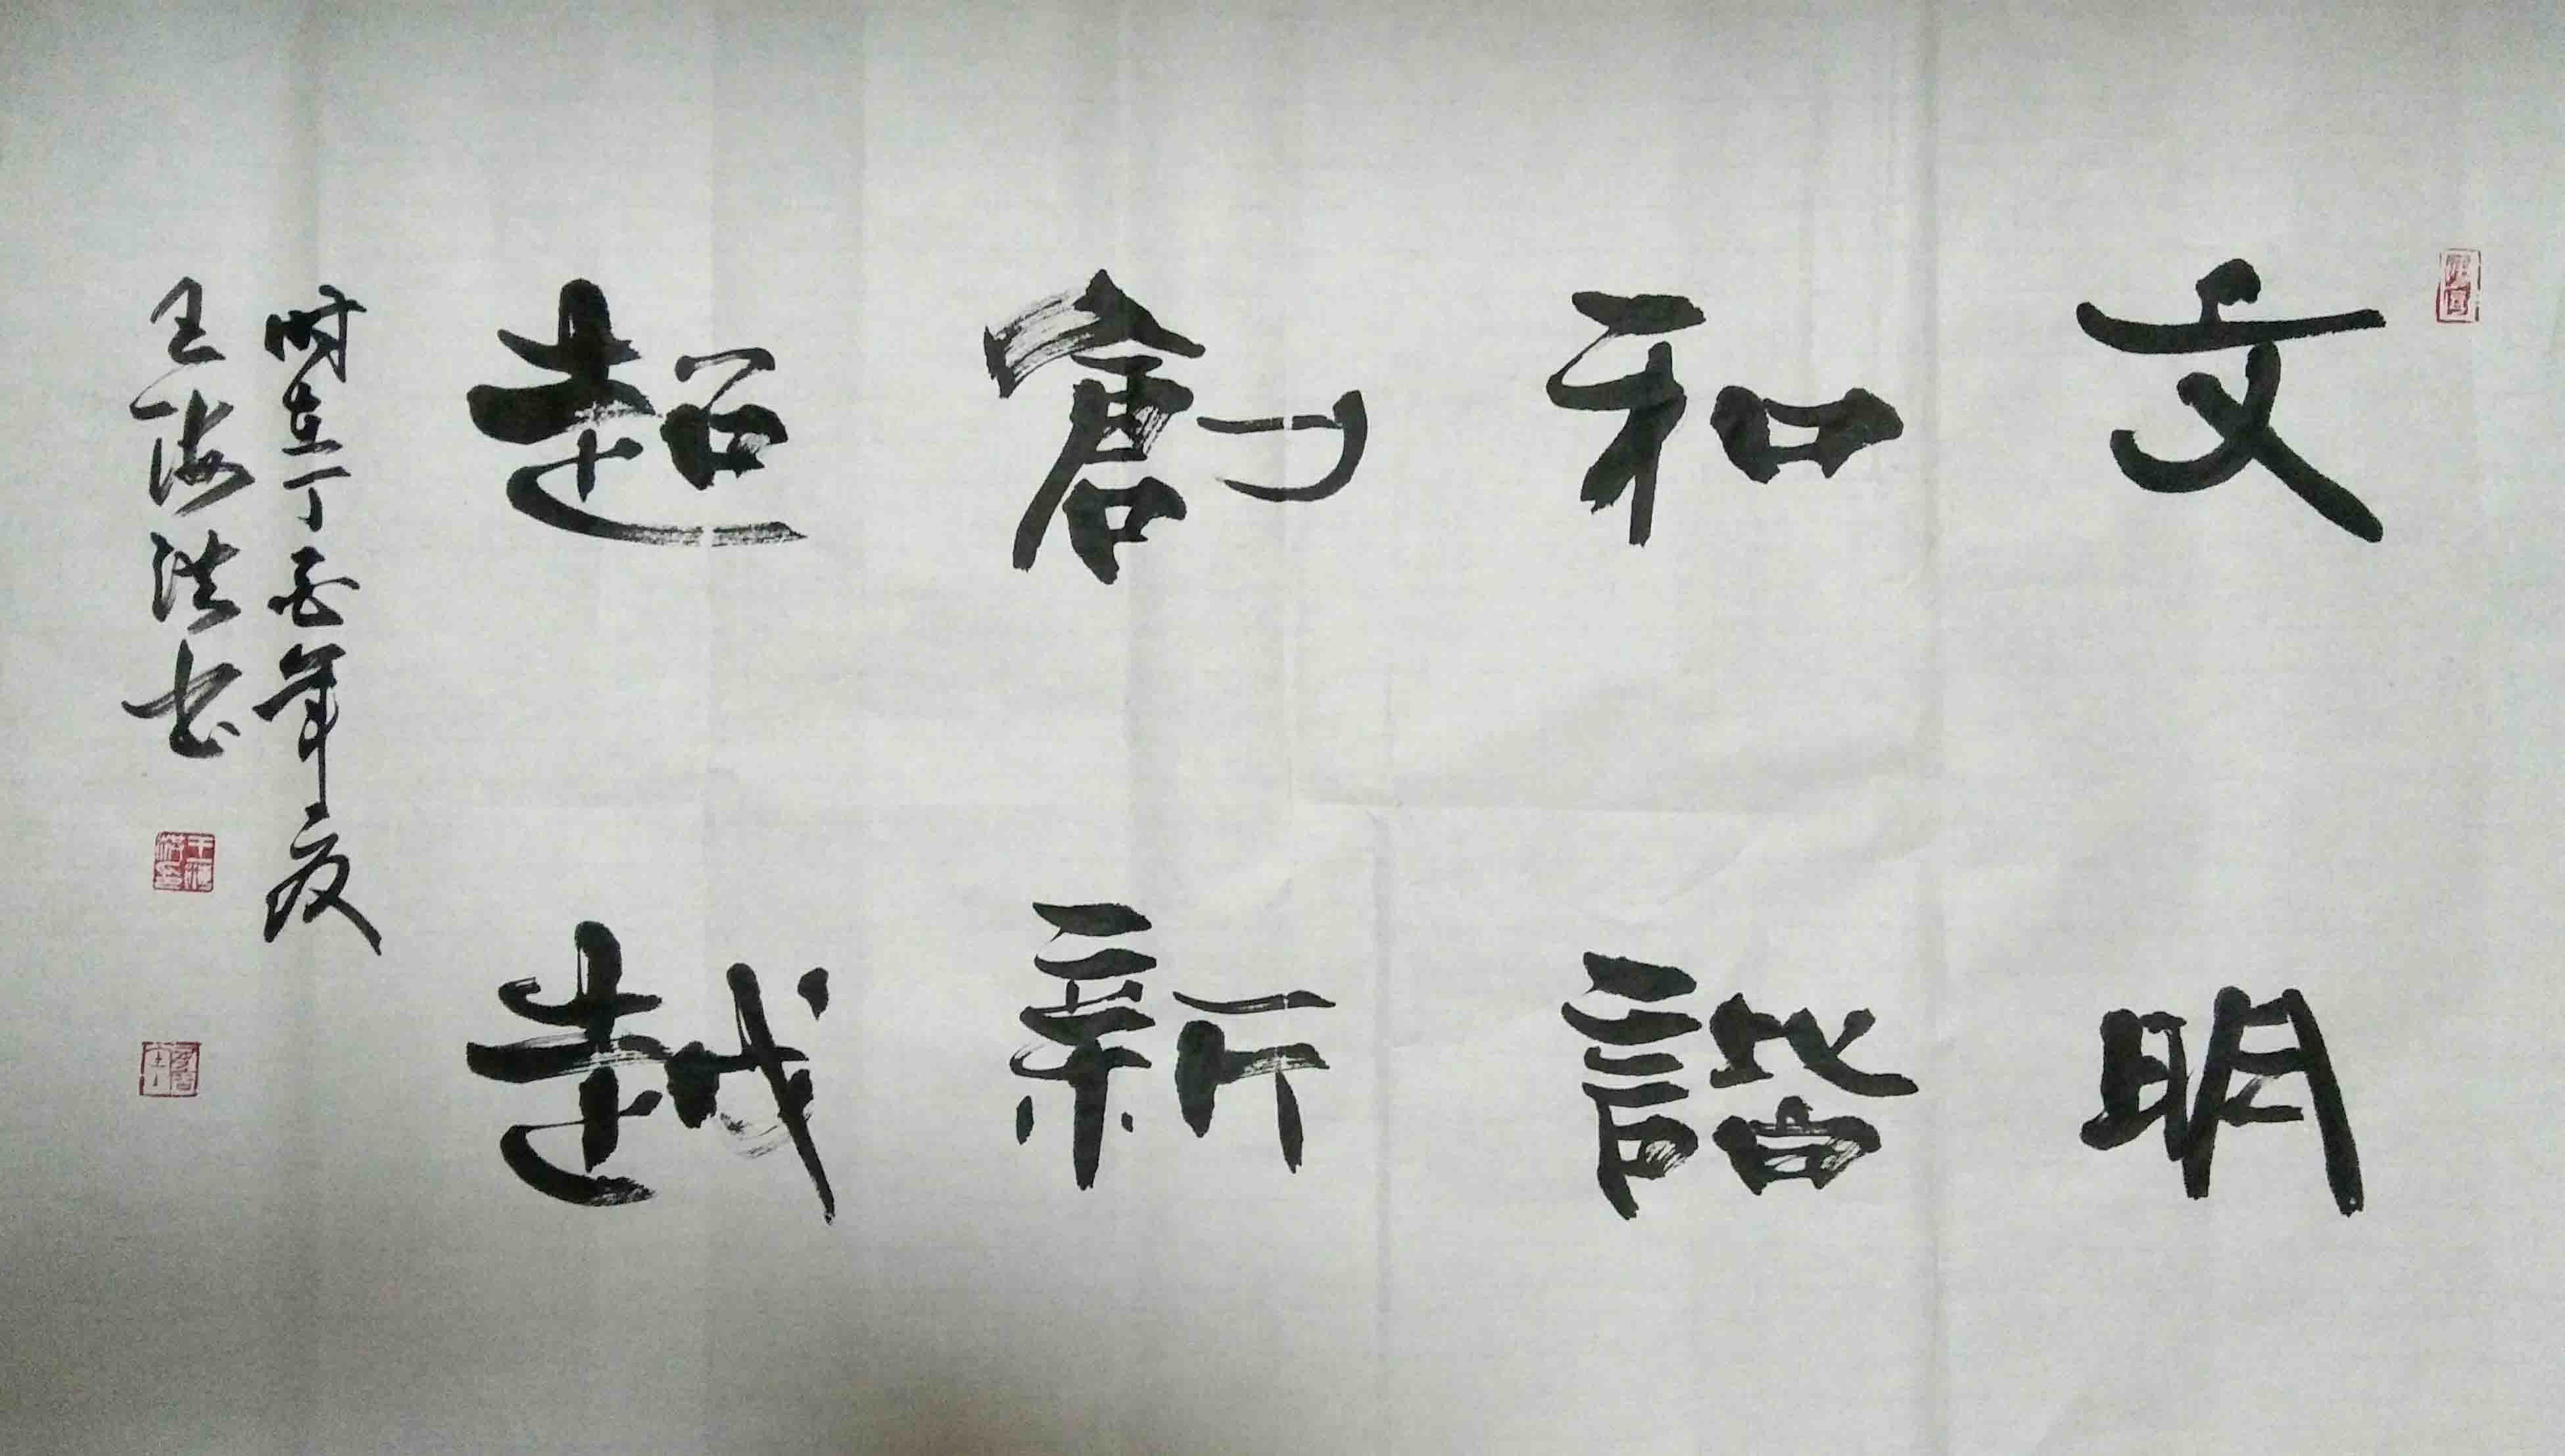 文明
和諧
創新
超越
時在丁酉年夏
王海洪书
王海洪印